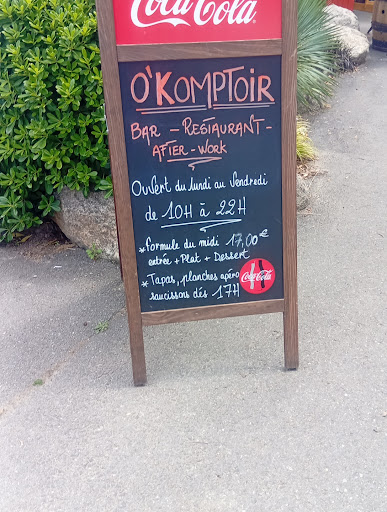 Coca-Cola
O'KOMPTOIR
BAR - RESTAURANT -
AFTER - WORK
Ouvert du lundi au vendredi
de 10H à 22H
* Formule du midi 17,00€
entrée + Plat + Dessert
* Tapas, planches apéro
saucissons dès 17H
Coca-Cola